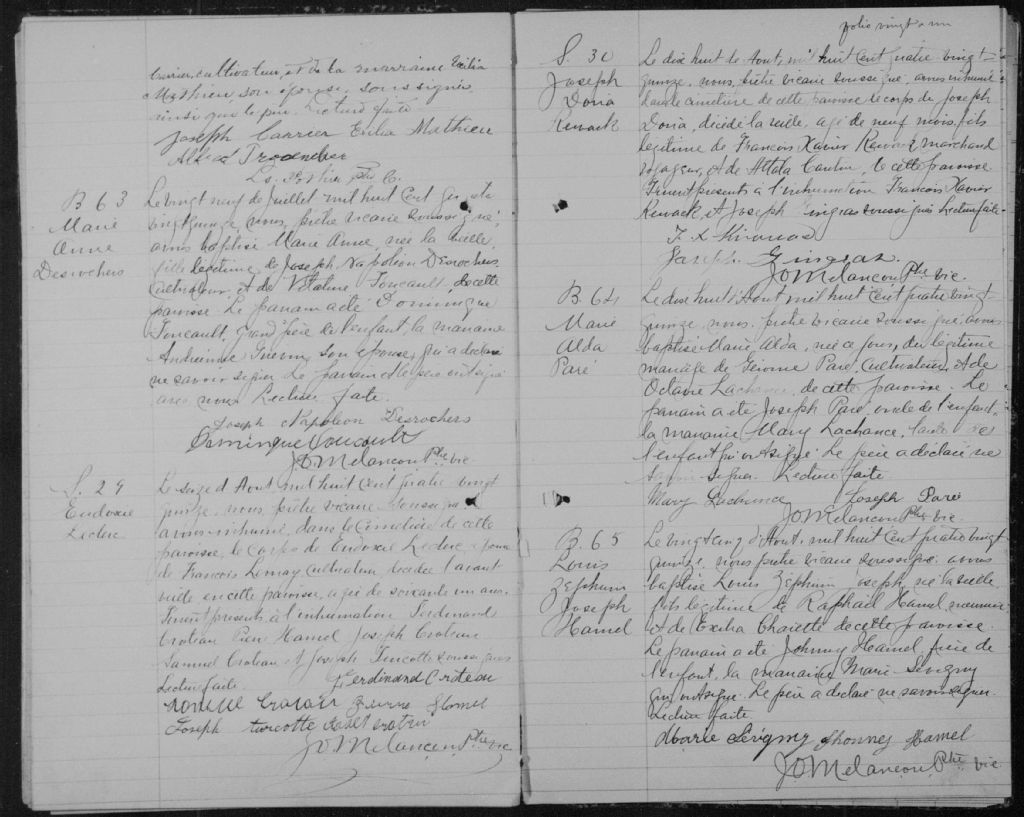 Carrier, cultivateur, et de la marraine Exilia
Mathieu son épouse, soussignés
ainsi que le père. Lecture faite
Joseph Carrier Exilia Mathieu
Ptre
B 63
Marie
Anne
Desrochers
Le vingt neuf de Juillet mil huit cent
vingt quinze, nous, prêtre vicaire soussigné,
avons baptisé Marie Anne, née la veille,
fille légitime de Joseph Napoléon Desrochers
cultivateur, et de Foucault, de cette
paroisse. Le parrain a été Dominique
Foucault, grand père de l'enfant, la marraine
son épouse, qui a déclaré
ne savoir signer. Le parrain et le père ont signé
avec nous. Lecture faite.
Joseph Napoléon Desrochers
Dominique Foucault
JO Melançon Ptre vic
S. 29
Eudoxie
Leclerc
Le seize d'Aout, mil huit cent quatre vingt
quinze, nous prêtre vicaire soussigné
avons inhumé, dans le cimetière de cette
paroisse, le corps de Eudoxie Leclerc, épouse
de François Lemay, cultivateur, décédée l'avant
veille en cette paroisse, agée de soixante un ans.
Furent présents à l'inhumation Ferdinand
Croteau Pierre Hamel Joseph Croteau
Samuel Croteau et Joseph Turcotte soussignés
Lecture faite. Ferdinand Croteau
Pierre Hamel
Joseph turcotte
JO Melançon Ptre vic
folio vingt & un
S. 30
Joseph
Doria
Le dix huit de Aout, mil huit cent quatre vingt-
quinze, nous, prêtre vicaire soussigné, avons inhumé
dans le cimetière de cette paroisse le corps de Joseph
Doria, décédé la veille, agé de neuf mois, fils
légitime de François Xavier marchand
voyageur, et de Attala Cantin, de cette paroisse
Furent présents à l'inhumation François Xavier
et Joseph Gingras soussignés Lecture faite.
F. X
Joseph Gingras.
JO Melançon Ptre vic.
B. 64
Marie
Alda
Paré
Le dix huit d'Aout mil huit cent quatre vingt-
quinze, nous, prêtre vicaire soussigné, avons
baptisé Marie Alda, née ce jour, du légitime
mariage de Gérome Paré, cultivateur, et de
Octavie Lachance, de cette paroisse. Le
parrain a été Joseph Paré, oncle de l'enfant,
la marraine Mary Lachance, tante de
l'enfant qui ont signé. Le père a déclaré ne
savoir signer. Lecture faite
Mary Lachance Joseph Paré
JO Melançon Ptre vic.
B. 65
Louis
Zéphirin
Joseph
Hamel
Le vingt cinq d'Aout, mil huit cent quatre vingt
quinze, nous prêtre vicaire soussigné avons
baptisé Louis Zéphirin Joseph, né la veille
fils légitime de Raphaël Hamel
et de Exilia Charette de cette paroisse.
Le parrain a été Johnny Hamel, frère de
l'enfant, la marraine Marie Sévigny
qui ont signé. Le père a déclaré ne savoir signer.
Lecture faite
Marie Sévigny Jhonney Hamel
JO Melançon Ptre vic